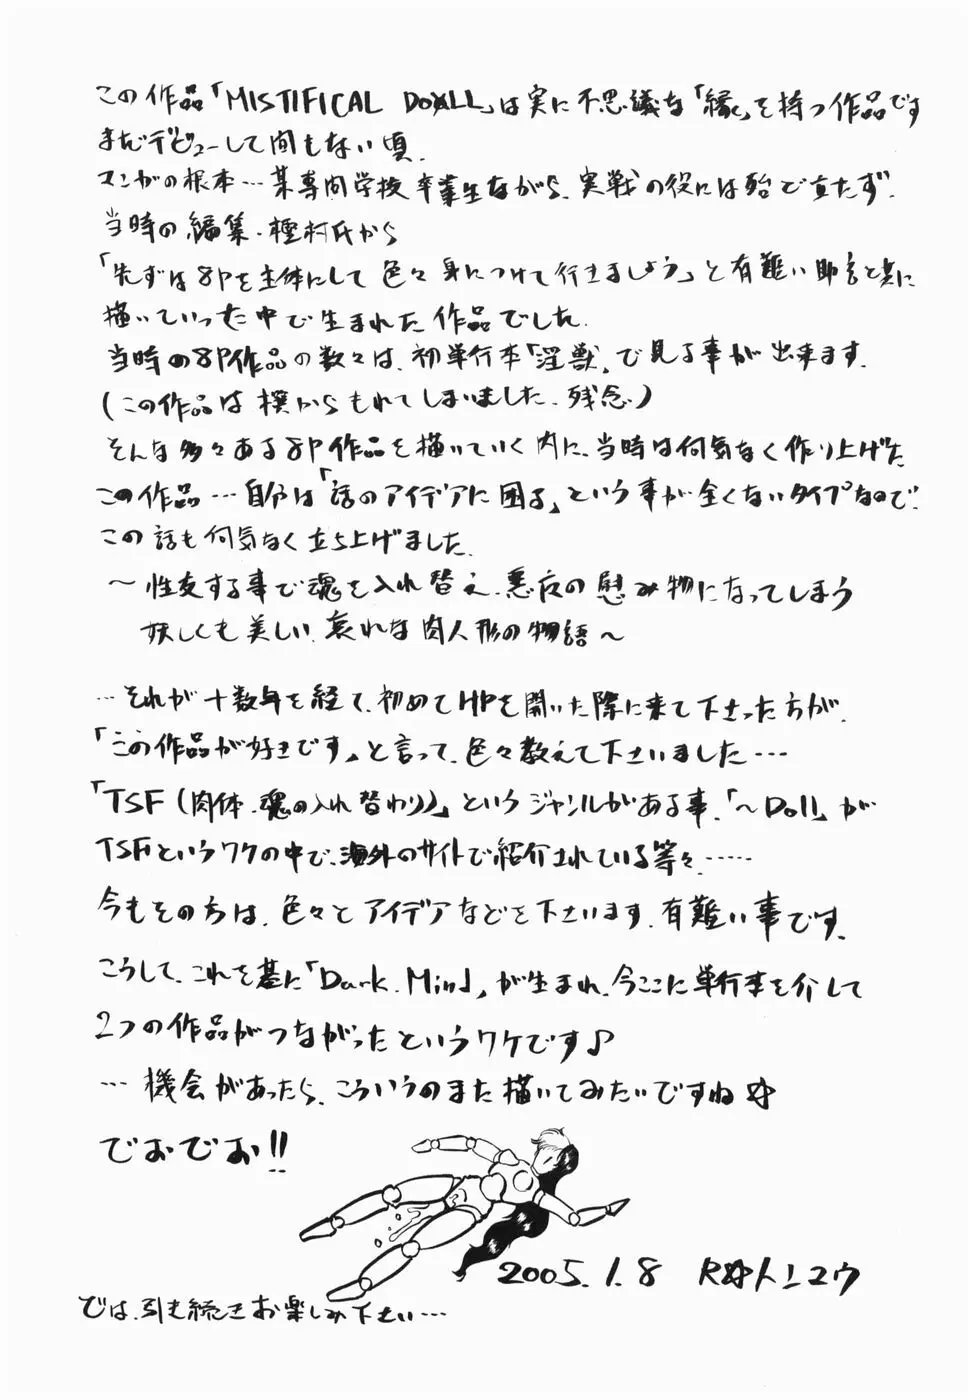 この作品「MISTIFICAL DOLL」は実に不思議な「縁」を持つ作品です
まだデビューして間もない頃.
マンガの根本…某専門学校卒業生ながら、実戦の役には殆で立たず.
当時の編集・種村氏から
「先ずは8Pを主体にして色々身につけて行きましょう」と有難い助言と共に
描いていった中で生まれた作品でした.
当時の8P作品の数々は、初単行本「淫獣」で見る事が出来ます.
(この作品は撰からもれてしまいました.残念)
そんな多々ある8P作品を描いていく内に、当時は何気なく作り上げた
この作品…自分は「話のアイデアに困る」という事が全くないタイプなので.
この話も何気なく立ち上げました.
〜性交する事で魂を入れ替え、悪友の慰み物になってしまう
妖しくも美しい、哀れな肉人形の物語〜
…それが十数年を経て、初めてHPを開いた際に来て下さった方が、
「この作品が好きです」と言って、色々教えて下さいました…
「TSF(肉体・魂の入れ替わり)」というジャンルがある事、「〜Doll」が
TSFというワケの中で、海外のサイトで紹介されている等々……
今もその方は、色々とアイデアなどを下さいます.有難い事です.
こうして、これを基に「Dark.Mind」が生まれ、今ここに単行本を介して
2つの作品がつながったというワケです♪
…機会があったら、こういうのまた描いてみたいですね☆
でおでお!!
2005.1.8
では、引き続きお楽しみ下さい…